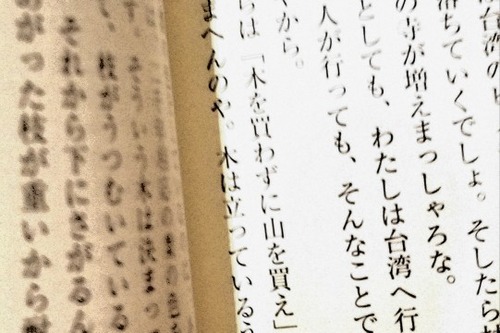 台湾の
落ちていくでしょ。そしたら
の寺が増えまっしゃろな。
としても、わたしは台湾へ行
人が行っても、そんなことで
から。
らは「木を買わずに山を買え」
まへんのや。木は立っている
す。そういう木は決まっ
い。枝がうつむいている
それから下にさがるん
がった枝が重いから